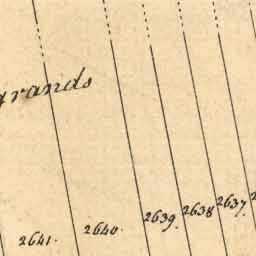 grands
2641. 2640. 2639. 2638 2637.